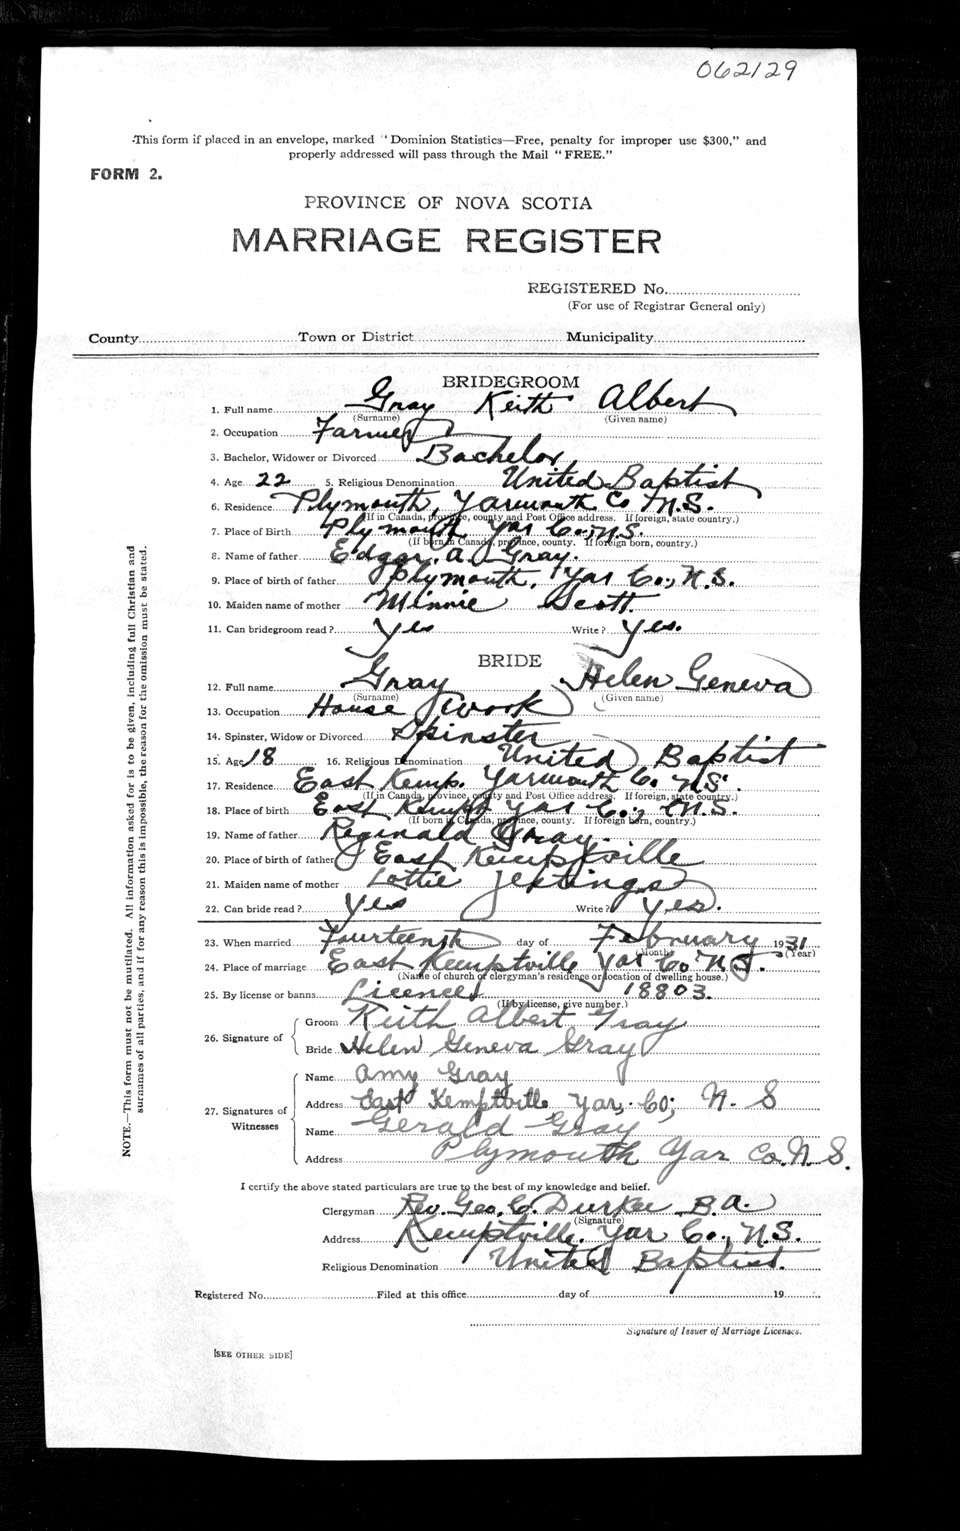 062129
This form if placed in an envelope, marked "Dominion Statistics—Free, penalty for improper use $300," and
properly addressed will pass through the Mail "FREE."
FORM 2.
PROVINCE OF NOVA SCOTIA
MARRIAGE REGISTER
REGISTERED No.
(For use of Registrar General only)
County Town or District Municipality
BRIDEGROOM
1. Full name Gray Keith Albert
(Surname) (Given name)
2. Occupation Farmer
3. Bachelor, Widower or Divorced Bachelor
4. Age 22 5. Religious Denomination United Baptist
6. Residence Plymouth, Yarmouth Co N.S.
(If in Canada, province, county and Post Office address. If foreign, state country.)
7. Place of Birth Plymouth Yar Co., N.S.
(If born in Canada, province, county. If foreign born, country.)
8. Name of father Edgar. A. Gray.
9. Place of birth of father Plymouth, Yar Co., N.S.
10. Maiden name of mother Minnie Scott.
11. Can bridegroom read? Yes Write? Yes.
BRIDE
12. Full name Gray Helen Geneva
(Surname) (Given name)
13. Occupation House Work
14. Spinster, Widow or Divorced Spinster
15. Age 18 16. Religious Denomination United Baptist
17. Residence East Kemp. Yarmouth Co. N.S.
(If in Canada, province, county and Post Office address. If foreign, state country.)
18. Place of birth East Kempt Yar Co., N.S.
(If born in Canada, province, county. If foreign born, country.)
19. Name of father Reginald Gray.
20. Place of birth of father East Kemptville
21. Maiden name of mother Lottie
22. Can bride read? Yes Write? Yes.
23. When married Fourteenth day of February 1931
(Month) (Year)
24. Place of marriage East Kemptville Yar Co. N.S.
(Name of church or clergyman's residence or location of dwelling house.)
25. By license or banns License 18803.
(If by license, give number.)
26. Signature of
Groom Keith Albert Gray
Bride Helen Geneva Gray
27. Signatures of Witnesses
Name Amy Gray
Address East Kemptville Yar, Co; N. S
Name Gerald Gray
Address Plymouth Yar Co. N. S.
I certify the above stated particulars are true to the best of my knowledge and belief.
Clergyman Rev. Geo. C. Durkee B.A.
(Signature)
Address Kemptville. Yar Co., N.S.
Religious Denomination United Baptist.
Registered No. Filed at this office day of 19
Signature of Issuer of Marriage Licenses.
[SEE OTHER SIDE]
NOTE.—This form must not be mutilated. All information asked for is to be given, including full Christian and
surnames of all parties, and if for any reason this is impossible, the reason for the omission must be stated.